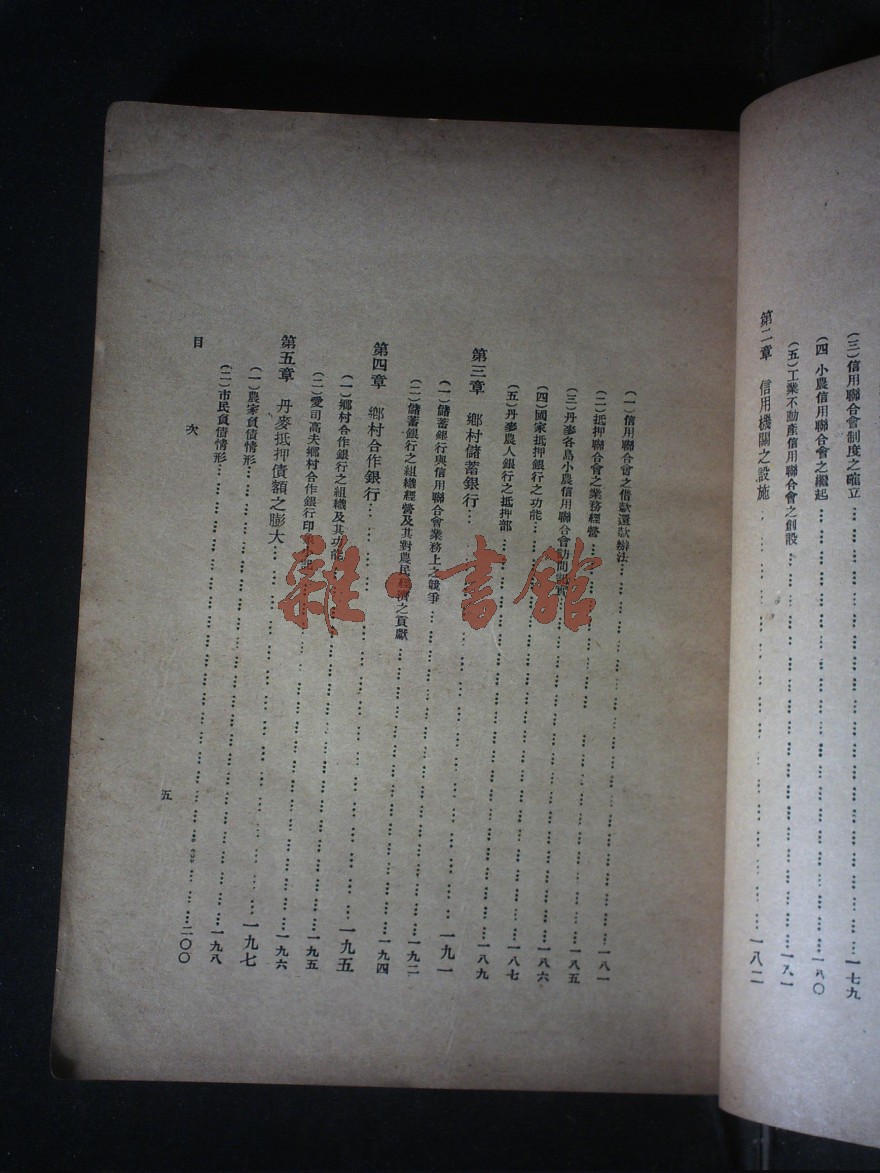 (三)信用聯合會制度之確立……一七九
(四 小農信用聯合會之繼起……一八〇
(五)工業不動產信用聯合會之創設……一八一
第二章 信用機關之設施……一八二
(一)信用聯合會之借款還款辦法……一八
(二)抵押聯合會之業務經營……一八五
(三)丹麥各島小農信用聯合會訪問……一八六
(四)國家抵押銀行之功能……一八七
(五)丹麥農人銀行之抵押部……一八九
第三章 鄉村儲蓄銀行……一九一
(一)儲蓄銀行與信用聯合會業務上之競爭……一九二
(二)儲蓄銀行之組織經營及其對農民經濟之貢獻……一九四
第四章 鄉村合作銀行……一九五
(一)鄉村合作銀行之組織及其功能……一九五
(二)愛司高夫鄉村合作銀行印……一九六
第五章 丹麥抵押債額之膨大……一九七
(一)農家負債情形……一九八
(二)市民負債情形……二〇〇
目次
五
雜·書館